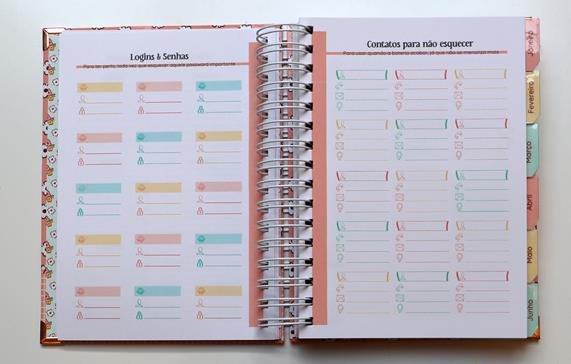 Logins & Senhas
Para ter perto toda vez que esquecer aquele password importante
Contatos para não esquecer
Para usar quando a bateria acabar, já que não se memoriza mais
Janeiro
Fevereiro
Março
Abril
Maio
Junho